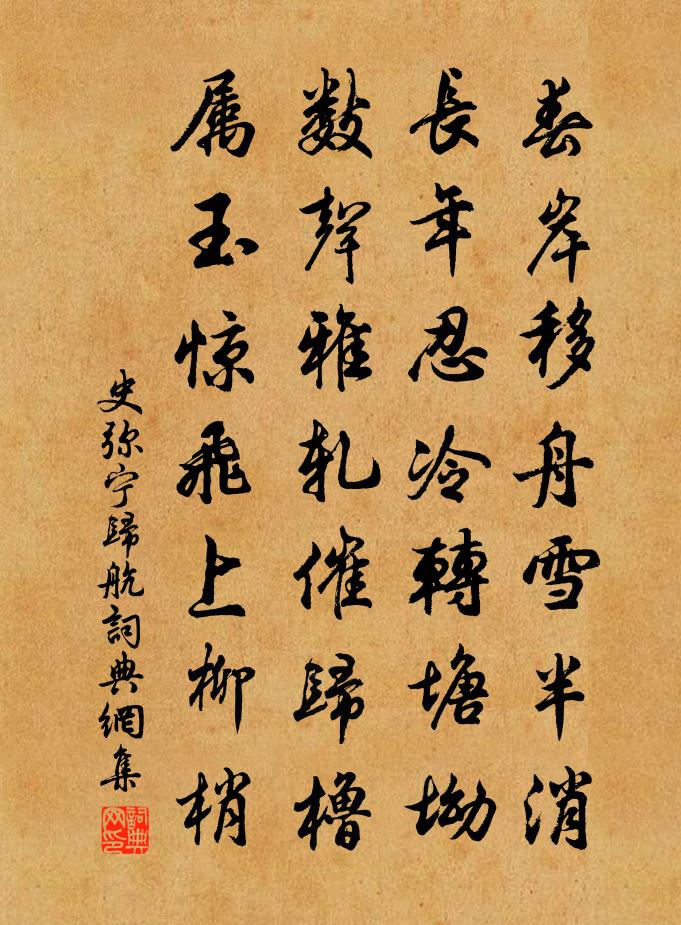 春岸移舟雪半消
長年忍冷轉塘坳
数聲雅轧催歸橹
属玉惊飛上柳梢
史弥宁歸航詞典網集
詞典网印